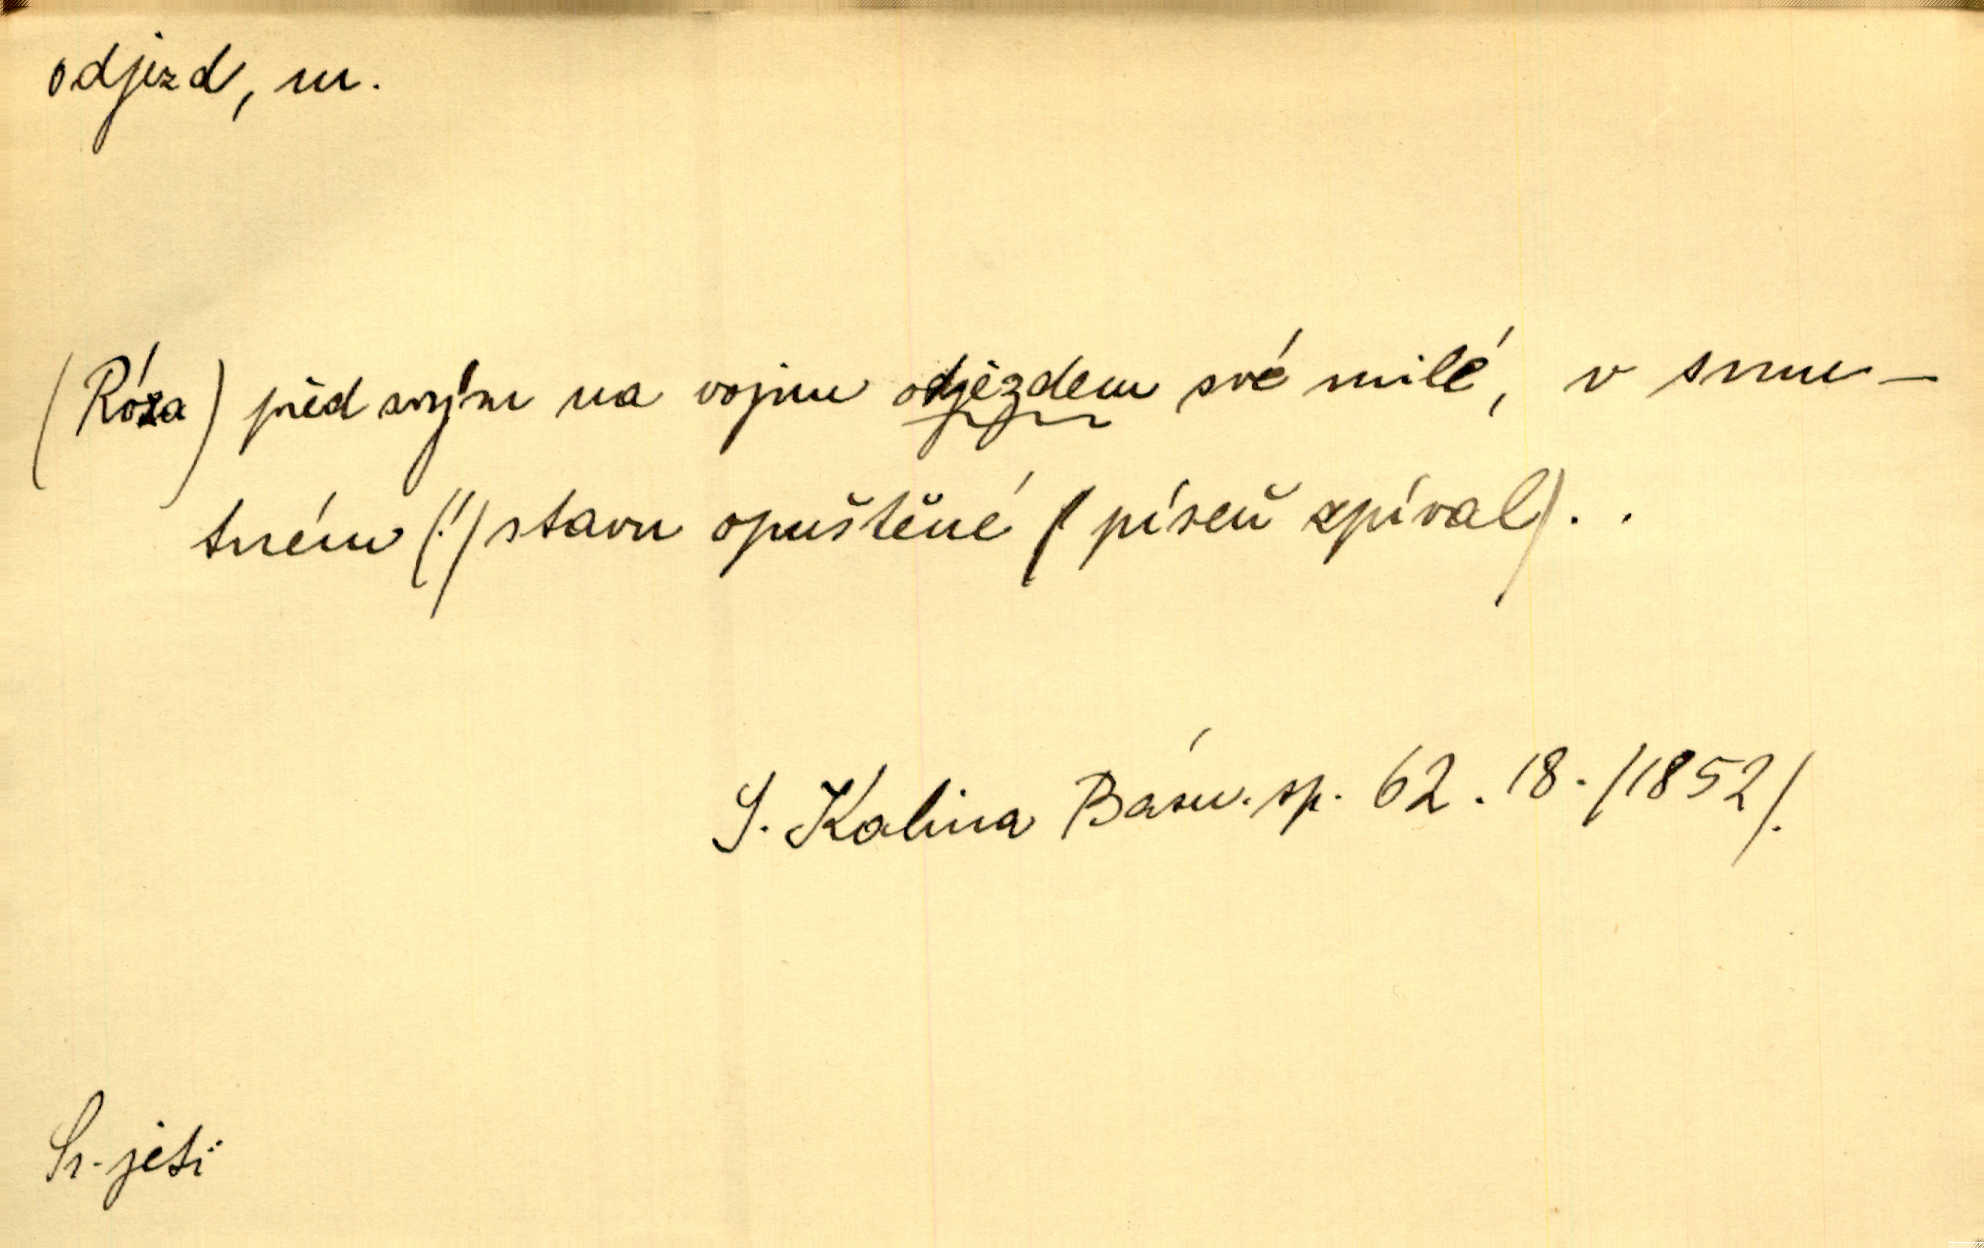 odjezd, m.
(Róza) před svým na vojnu odjezdem své milé, v smu-
tném (!) stavu opuštěné (píseň zpíval)..
J. Kalina Básn. sp. 62. 18. /1852/.
Sr. jeti